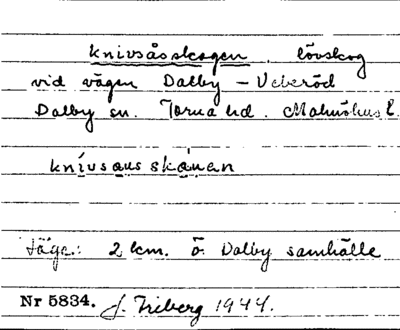 knivsåsskogen. lövskog
vid vägen Dalby – Veberöd
Dalby sn. Torna hd. Malmöhus l.
knivsausskåuan
Läge: 2 km. ö. Dalby samhälle
Nr 5834. J. Friberg 1944.